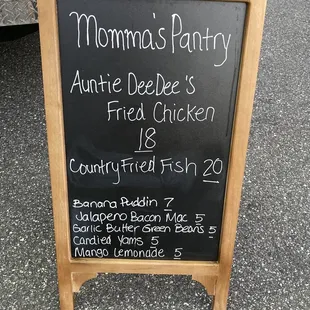 Momma's Pantry
Auntie DeeDee's
Fried Chicken
18
Country Fried Fish 20
Banana Puddin 7
Jalapeno Bacon Mac 5
Garlic Butter Green Beans 5
Candied Yams 5
Mango Lemonade 5